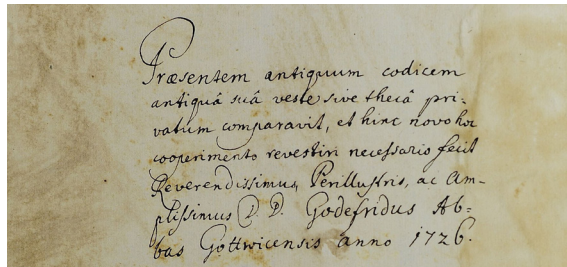 Præsentem antiquum codicem
antiquâ suâ veste sive thecâ pri-
vatum comparavit, et hinc novo hoc
cooperimento revestiri necessario fecit
Reverendissimus, Perillustris, ac Am-
plissimus D. D. Godefridus Ab-
bas Gottwicensis anno 1726.